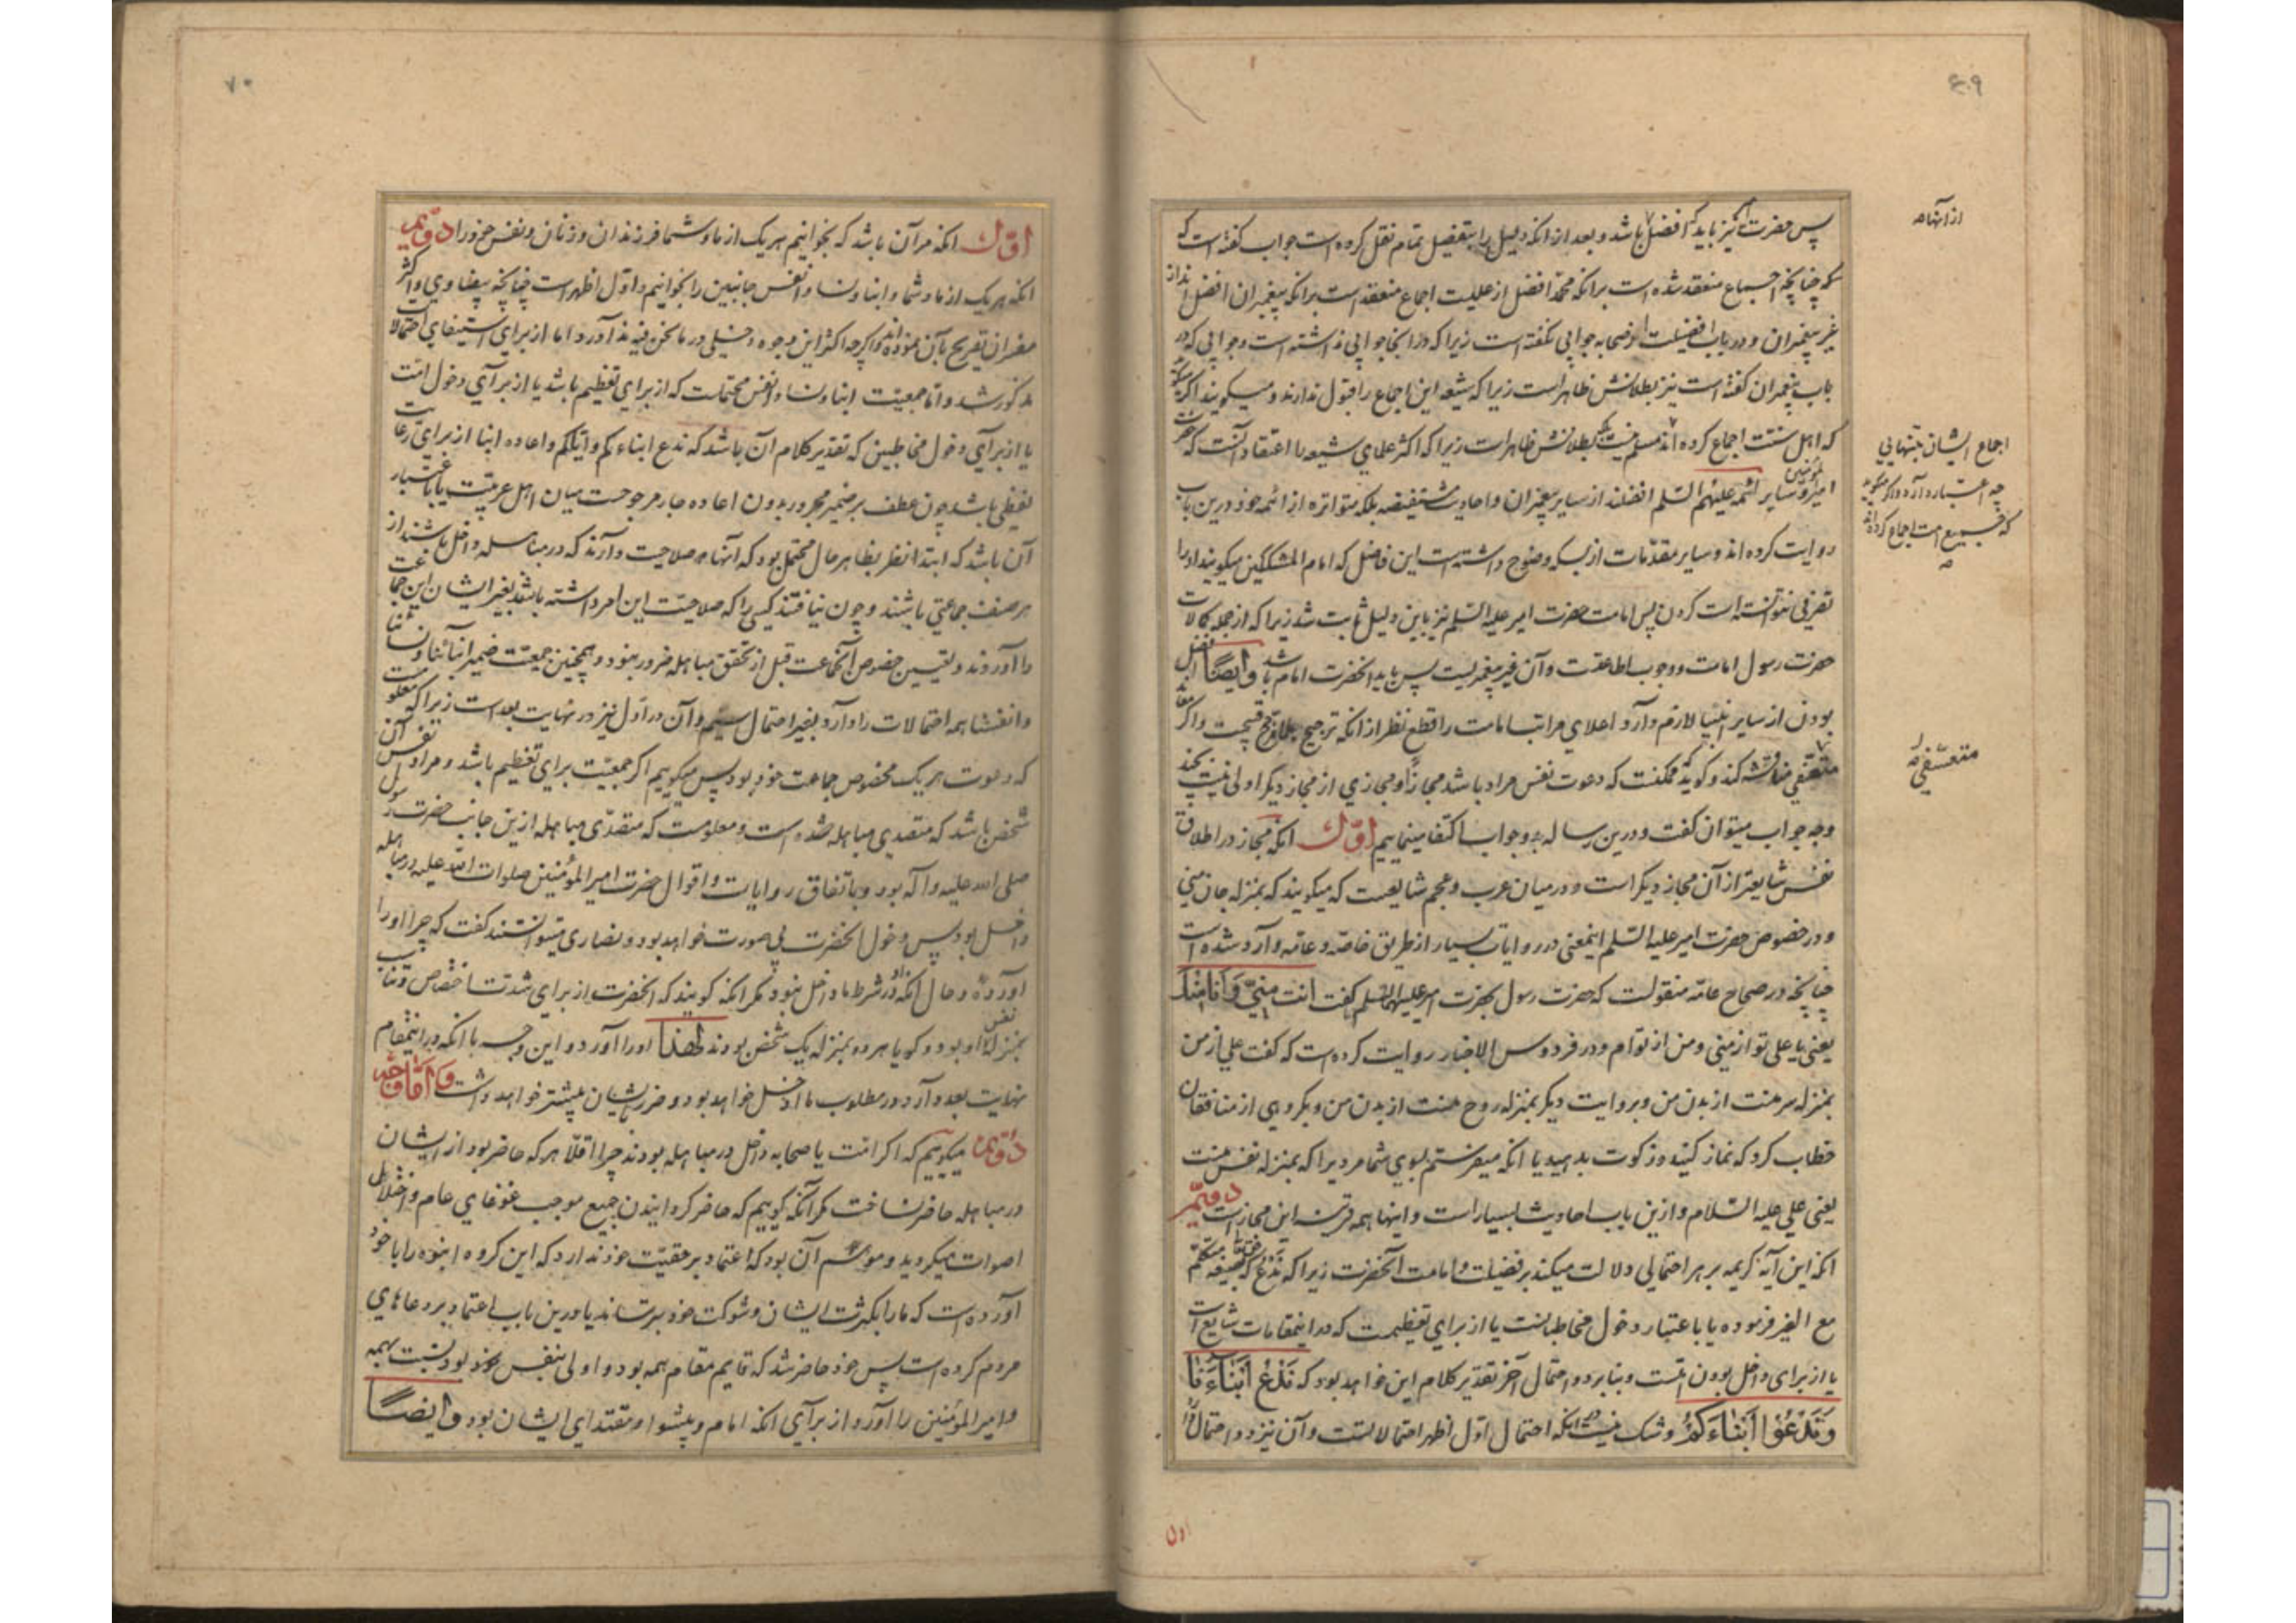 ۶۰۹
پس حضرت امیر نیز باید که افضل باشد و بعد از آنکه دلیل را بتفصیل تمام نقل کرده است جواب گفته است که
که چنانچه اجماع منعقد شده است برانکه محمد افضل از علیست اجماع منعقد است برانکه پیغمبران افضل اند از
غیر پیغمبران و در باب افضلیت از صحابه جوابی نگفته است زیرا که در اینجا جوابی نداشته است و جوابی که در
باب پیغمبران گفته است نیز بطلانش ظاهر است زیرا که شیعه این اجماع را قبول ندارند و میگویند اگر میگویند
که اهل سنت اجماع کرده اند مسلم نیست بلکه بطلانش ظاهر است زیرا که اکثر علمای شیعه را اعتقاد آنست که حضرت
امیر المؤمنین و سایر ائمه علیهم السلم افضلند از سایر پیغمبران و احادیث مستفیضه بلکه متواتره از ائمه خود درین باب
روایت کرده اند و سایر مقدمات از بسکه وضوح داشته است این فاضل که امام المشککین میگویند او را
تصرفی نتوانسته است کردن پس امامت حضرت امیر علیه السلم نیز باین دلیل ثابت شد زیرا که از جمله کمالات
حضرت رسول امامت و وجوب اطاعتست و آن غیر پیغمبریست پس باید آنحضرت امام باشد و ایضا افضل
بودن از سایر انبیا لازم دارد اعلای مراتب امامت را قطع نظر از آنکه ترجیح مرجوح قبیحست و اگر معاند
متعسفی مناقشه کند و گوید ممکنست که دعوت نفس مراد باشد مجازا و مجازی از مجاز دیگر اولی نیست بچند
وجه جواب میتوان گفت و درین رساله بدو جواب اکتفا مینماییم اول آنکه مجاز در اطلاق
نفس شایعتر از آن مجاز دیگر است و در میان عرب و عجم شایعست که میگویند که بمنزله جان منی
و در خصوص حضرت امیر علیه السلم اینمعنی در روایات بسیار از طریق خاصه و عامه وارد شده است
چنانچه در صحاح عامه منقولست که حضرت رسول بحضرت امیر علیهما السلم گفت انت منی و انا منک
یعنی یا علی تو از منی و من از توام و در فردوس الاخبار روایت کرده است که گفت علی از من
بمنزله سر منست از بدن من و بروایت دیگر بمنزله روح منست از بدن من و بگروهی از منافقان
خطاب کرد که نماز کنید و زکوت بدهید یا آنکه میفرستم بسوی شما مردیرا که بمنزله نفس منست
یعنی علی علیه السلام و ازین باب احادیث بسیار است و اینها همه قرینه این مجاز است دویم
آنکه این آیه کریمه بر هر احتمالی دلالت میکند بر فضیلت و امامت آنحضرت زیرا که ندع که بصیغه متکلم
مع الغیر فرموده یا باعتبار دخول مخاطبانست یا از برای تعظیمست که در اینمقامات شایع است
یا از برای داخل بودن امتست و بنابر دو احتمال آخر تقدیر کلام این خواهد بود که ندع ابناءنا
وتدعوا ابناءکم و شک نیست در آنکه احتمال اول اظهر احتمالاتست و آن نیز دو احتمال دارد
اول
از انهامه
اجماع ایشان بتنهایی
چه اعتبار دارد و اگر میگویند
که جمیع امت اجماع کرده اند
متعسفی
۷۰
اول آنکه مراد آن باشد که بخوانیم هر یک از ما و شما فرزندان و زنان و نفس خود را دویم
آنکه هر یک از ما و شما و ابنا و نسا و انفس جانبین را بخوانیم و اول اظهر است چنانچه بیضاوی و اکثر
مفسران تصریح بآن نموده اند و اگر چه اکثر این وجوه دخیلی در ما نحن فیه ندارد و اما از برای استیفای احتمالات
مذکور شد و اما جمعیت ابنا و نسا و انفس محتملست که از برای تعظیم باشد یا از برای دخول امت
یا از برای دخول مخاطبین که تقدیر کلام آن باشد که ندع ابناءکم و ایاکم و اعاده ابنا از برای رعایت
لفظی باشد چون عطف بر ضمیر مجرور بدون اعاده جار مرجوحست میان اهل عربیت یا باعتبار
آن باشد که ابتدا نظر بظاهر حال محتمل بود که آنها صلاحیت دارند که در مباهله داخل باشند از
هر صنف جماعتی باشند و چون نیافتند کسی را که صلاحیت این امر داشته باشد بغیر ایشان این جماعت
را آوردند و تعیین خصوص آنجماعت قبل از تحقق مباهله ضرور نبود و همچنین جمعیت ضمیر ابنائنا و نسائنا
و انفسنا همه احتمالات را دارد بغیر احتمال سیم و آن در اول نیز در نهایت بعد است زیرا که معلومست
که دعوت هر یک مخصوص جماعت خود بود پس میگوییم اگر جمعیت برای تعظیم باشد و مراد نفس آن
شخص باشد که متصدی مباهله شده است و معلومست که متصدی مباهله ازین جانب حضرت رسول
صلی الله علیه و آله بود و باتفاق روایات و اقوال حضرت امیر المؤمنین صلوات الله علیه در مباهله
داخل بود پس دخول آنحضرت بی صورت خواهد بود و نصاری میتوانستند گفت که چرا او را
آورده و حال آنکه او در شرط ما داخل نبود مگر آنکه گویند که آنحضرت از برای شدت اختصاص و تناسب
بمنزله نفس او بود و گویا هر دو بمنزله یک شخص بودند لهذا او را آورد و این وجه با آنکه در اینمقام
نهایت بعد دارد در مطلوب ما ادخل خواهد بود و ضرر ایشان بیشتر خواهد داشت و اما وجه
دویم میگوییم که اگر امت یا صحابه داخل در مباهله بودند چرا اقلا هر که حاضر بود از ایشان
در مباهله حاضر نساخت مگر آنکه گوییم که حاضر گردانیدن جمیع موجب غوغای عام و اختلال
اصوات میگردید و موهم آن بود که اعتماد بر حقیت خود ندارد که این گروه انبوه را با خود
آورده است که ما را بکثرت ایشان و شوکت خود بترساند یا درین باب اعتماد بر دعاهای
مردم کرده است پس خود حاضر شد که قایم مقام همه بود و اولی بنفس خود بود نسبت بهمه
و امیر المؤمنین را آورد از برای آنکه امام و پیشوا و مقتدای ایشان بود و ایضا